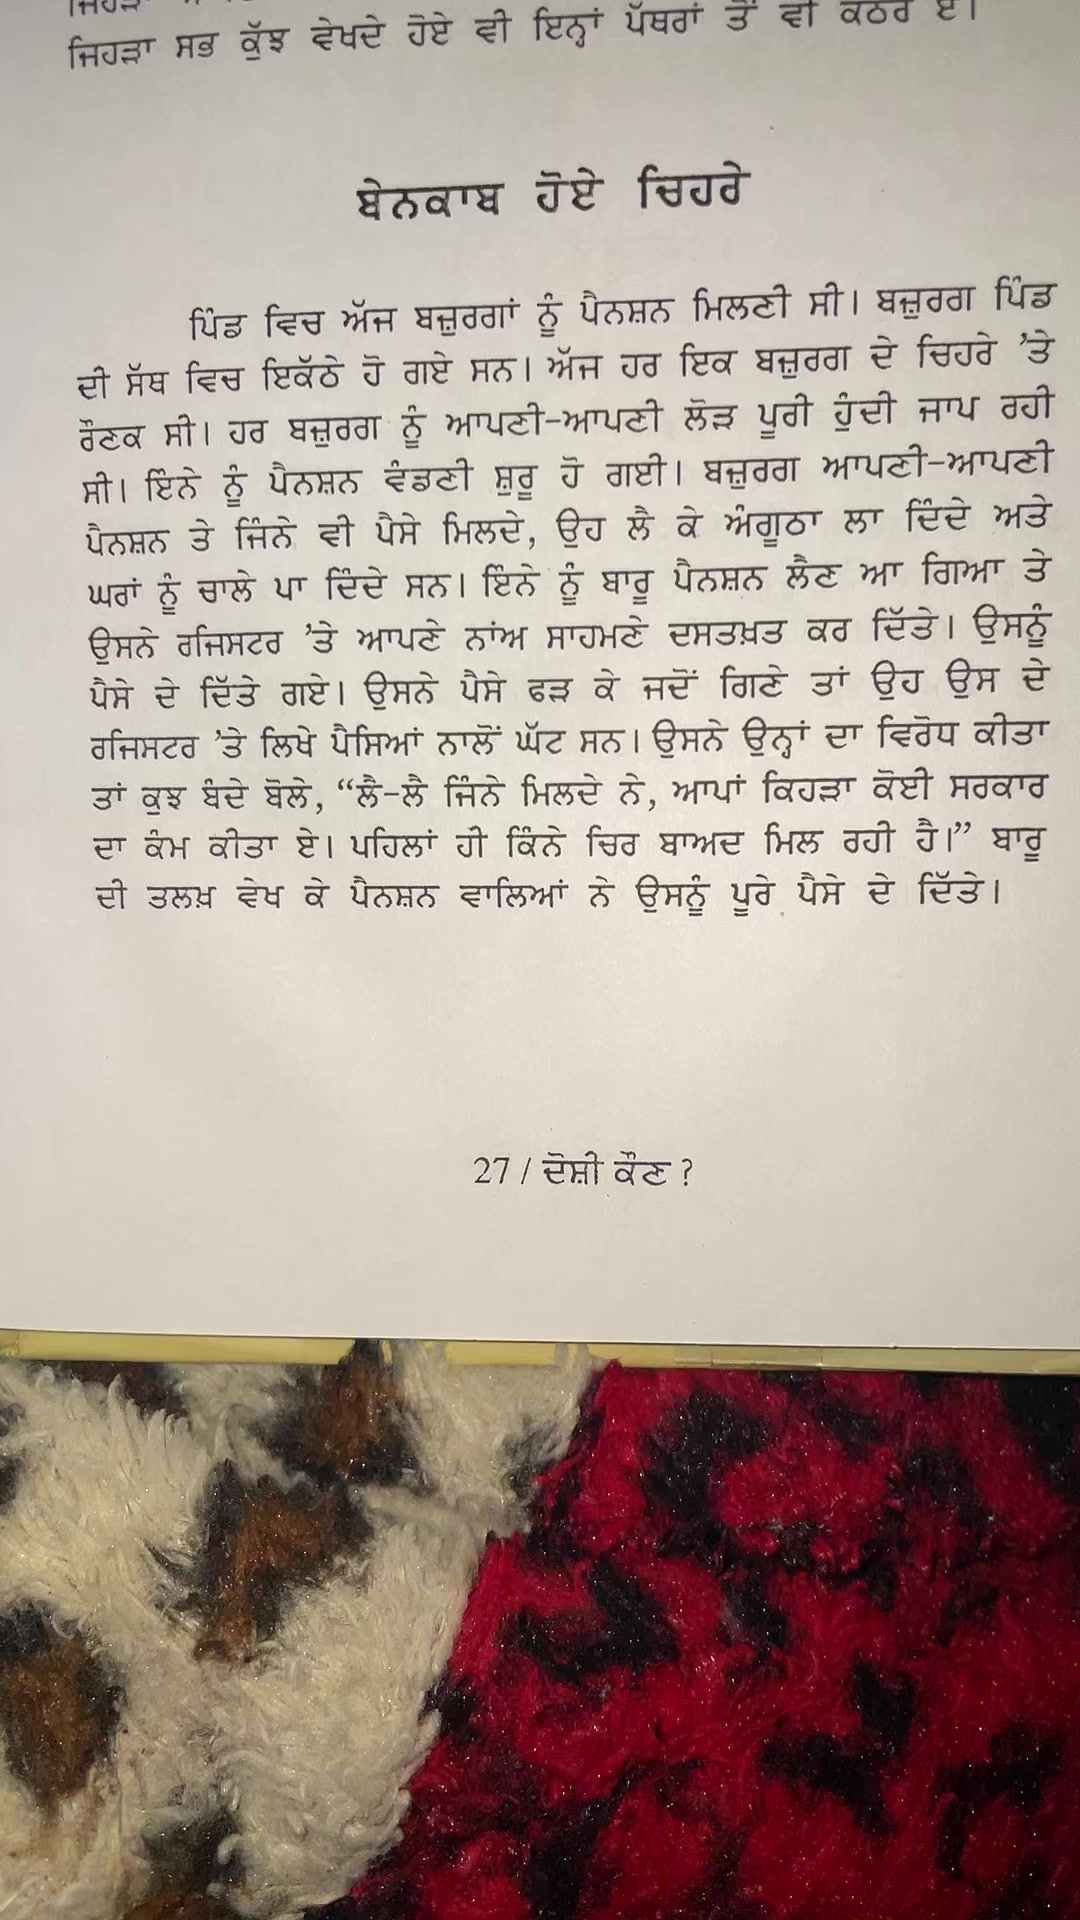 ਜਿਹੜਾ ਸਭ ਕੁੱਝ ਵੇਖਦੇ ਹੋਏ ਵੀ ਇਨ੍ਹਾਂ ਪੱਥਰਾਂ ਤੋਂ ਵੀ ਕਠੋਰ ਏ।
ਬੇਨਕਾਬ ਹੋਏ ਚਿਹਰੇ
ਪਿੰਡ ਵਿਚ ਅੱਜ ਬਜ਼ੁਰਗਾਂ ਨੂੰ ਪੈਨਸ਼ਨ ਮਿਲਣੀ ਸੀ। ਬਜ਼ੁਰਗ ਪਿੰਡ
ਦੀ ਸੱਥ ਵਿਚ ਇਕੱਠੇ ਹੋ ਗਏ ਸਨ। ਅੱਜ ਹਰ ਇਕ ਬਜ਼ੁਰਗ ਦੇ ਚਿਹਰੇ ’ਤੇ
ਰੌਣਕ ਸੀ। ਹਰ ਬਜ਼ੁਰਗ ਨੂੰ ਆਪਣੀ-ਆਪਣੀ ਲੋੜ ਪੂਰੀ ਹੁੰਦੀ ਜਾਪ ਰਹੀ
ਸੀ। ਇੰਨੇ ਨੂੰ ਪੈਨਸ਼ਨ ਵੰਡਣੀ ਸ਼ੁਰੂ ਹੋ ਗਈ। ਬਜ਼ੁਰਗ ਆਪਣੀ-ਆਪਣੀ
ਪੈਨਸ਼ਨ ਤੇ ਜਿੰਨੇ ਵੀ ਪੈਸੇ ਮਿਲਦੇ, ਉਹ ਲੈ ਕੇ ਅੰਗੂਠਾ ਲਾ ਦਿੰਦੇ ਅਤੇ
ਘਰਾਂ ਨੂੰ ਚਾਲੇ ਪਾ ਦਿੰਦੇ ਸਨ। ਇੰਨੇ ਨੂੰ ਬਾਰੂ ਪੈਨਸ਼ਨ ਲੈਣ ਆ ਗਿਆ ਤੇ
ਉਸਨੇ ਰਜਿਸਟਰ ’ਤੇ ਆਪਣੇ ਨਾਂਅ ਸਾਹਮਣੇ ਦਸਤਖ਼ਤ ਕਰ ਦਿੱਤੇ। ਉਸਨੂੰ
ਪੈਸੇ ਦੇ ਦਿੱਤੇ ਗਏ। ਉਸਨੇ ਪੈਸੇ ਫੜ ਕੇ ਜਦੋਂ ਗਿਣੇ ਤਾਂ ਉਹ ਉਸ ਦੇ
ਰਜਿਸਟਰ ’ਤੇ ਲਿਖੇ ਪੈਸਿਆਂ ਨਾਲੋਂ ਘੱਟ ਸਨ। ਉਸਨੇ ਉਨ੍ਹਾਂ ਦਾ ਵਿਰੋਧ ਕੀਤਾ
ਤਾਂ ਕੁਝ ਬੰਦੇ ਬੋਲੇ, “ਲੈ-ਲੈ ਜਿੰਨੇ ਮਿਲਦੇ ਨੇ, ਆਪਾਂ ਕਿਹੜਾ ਕੋਈ ਸਰਕਾਰ
ਦਾ ਕੰਮ ਕੀਤਾ ਏ। ਪਹਿਲਾਂ ਹੀ ਕਿੰਨੇ ਚਿਰ ਬਾਅਦ ਮਿਲ ਰਹੀ ਹੈ।” ਬਾਰੂ
ਦੀ ਤਲਖ਼ ਵੇਖ ਕੇ ਪੈਨਸ਼ਨ ਵਾਲਿਆਂ ਨੇ ਉਸਨੂੰ ਪੂਰੇ ਪੈਸੇ ਦੇ ਦਿੱਤੇ।
27 / ਦੋਸ਼ੀ ਕੌਣ ?